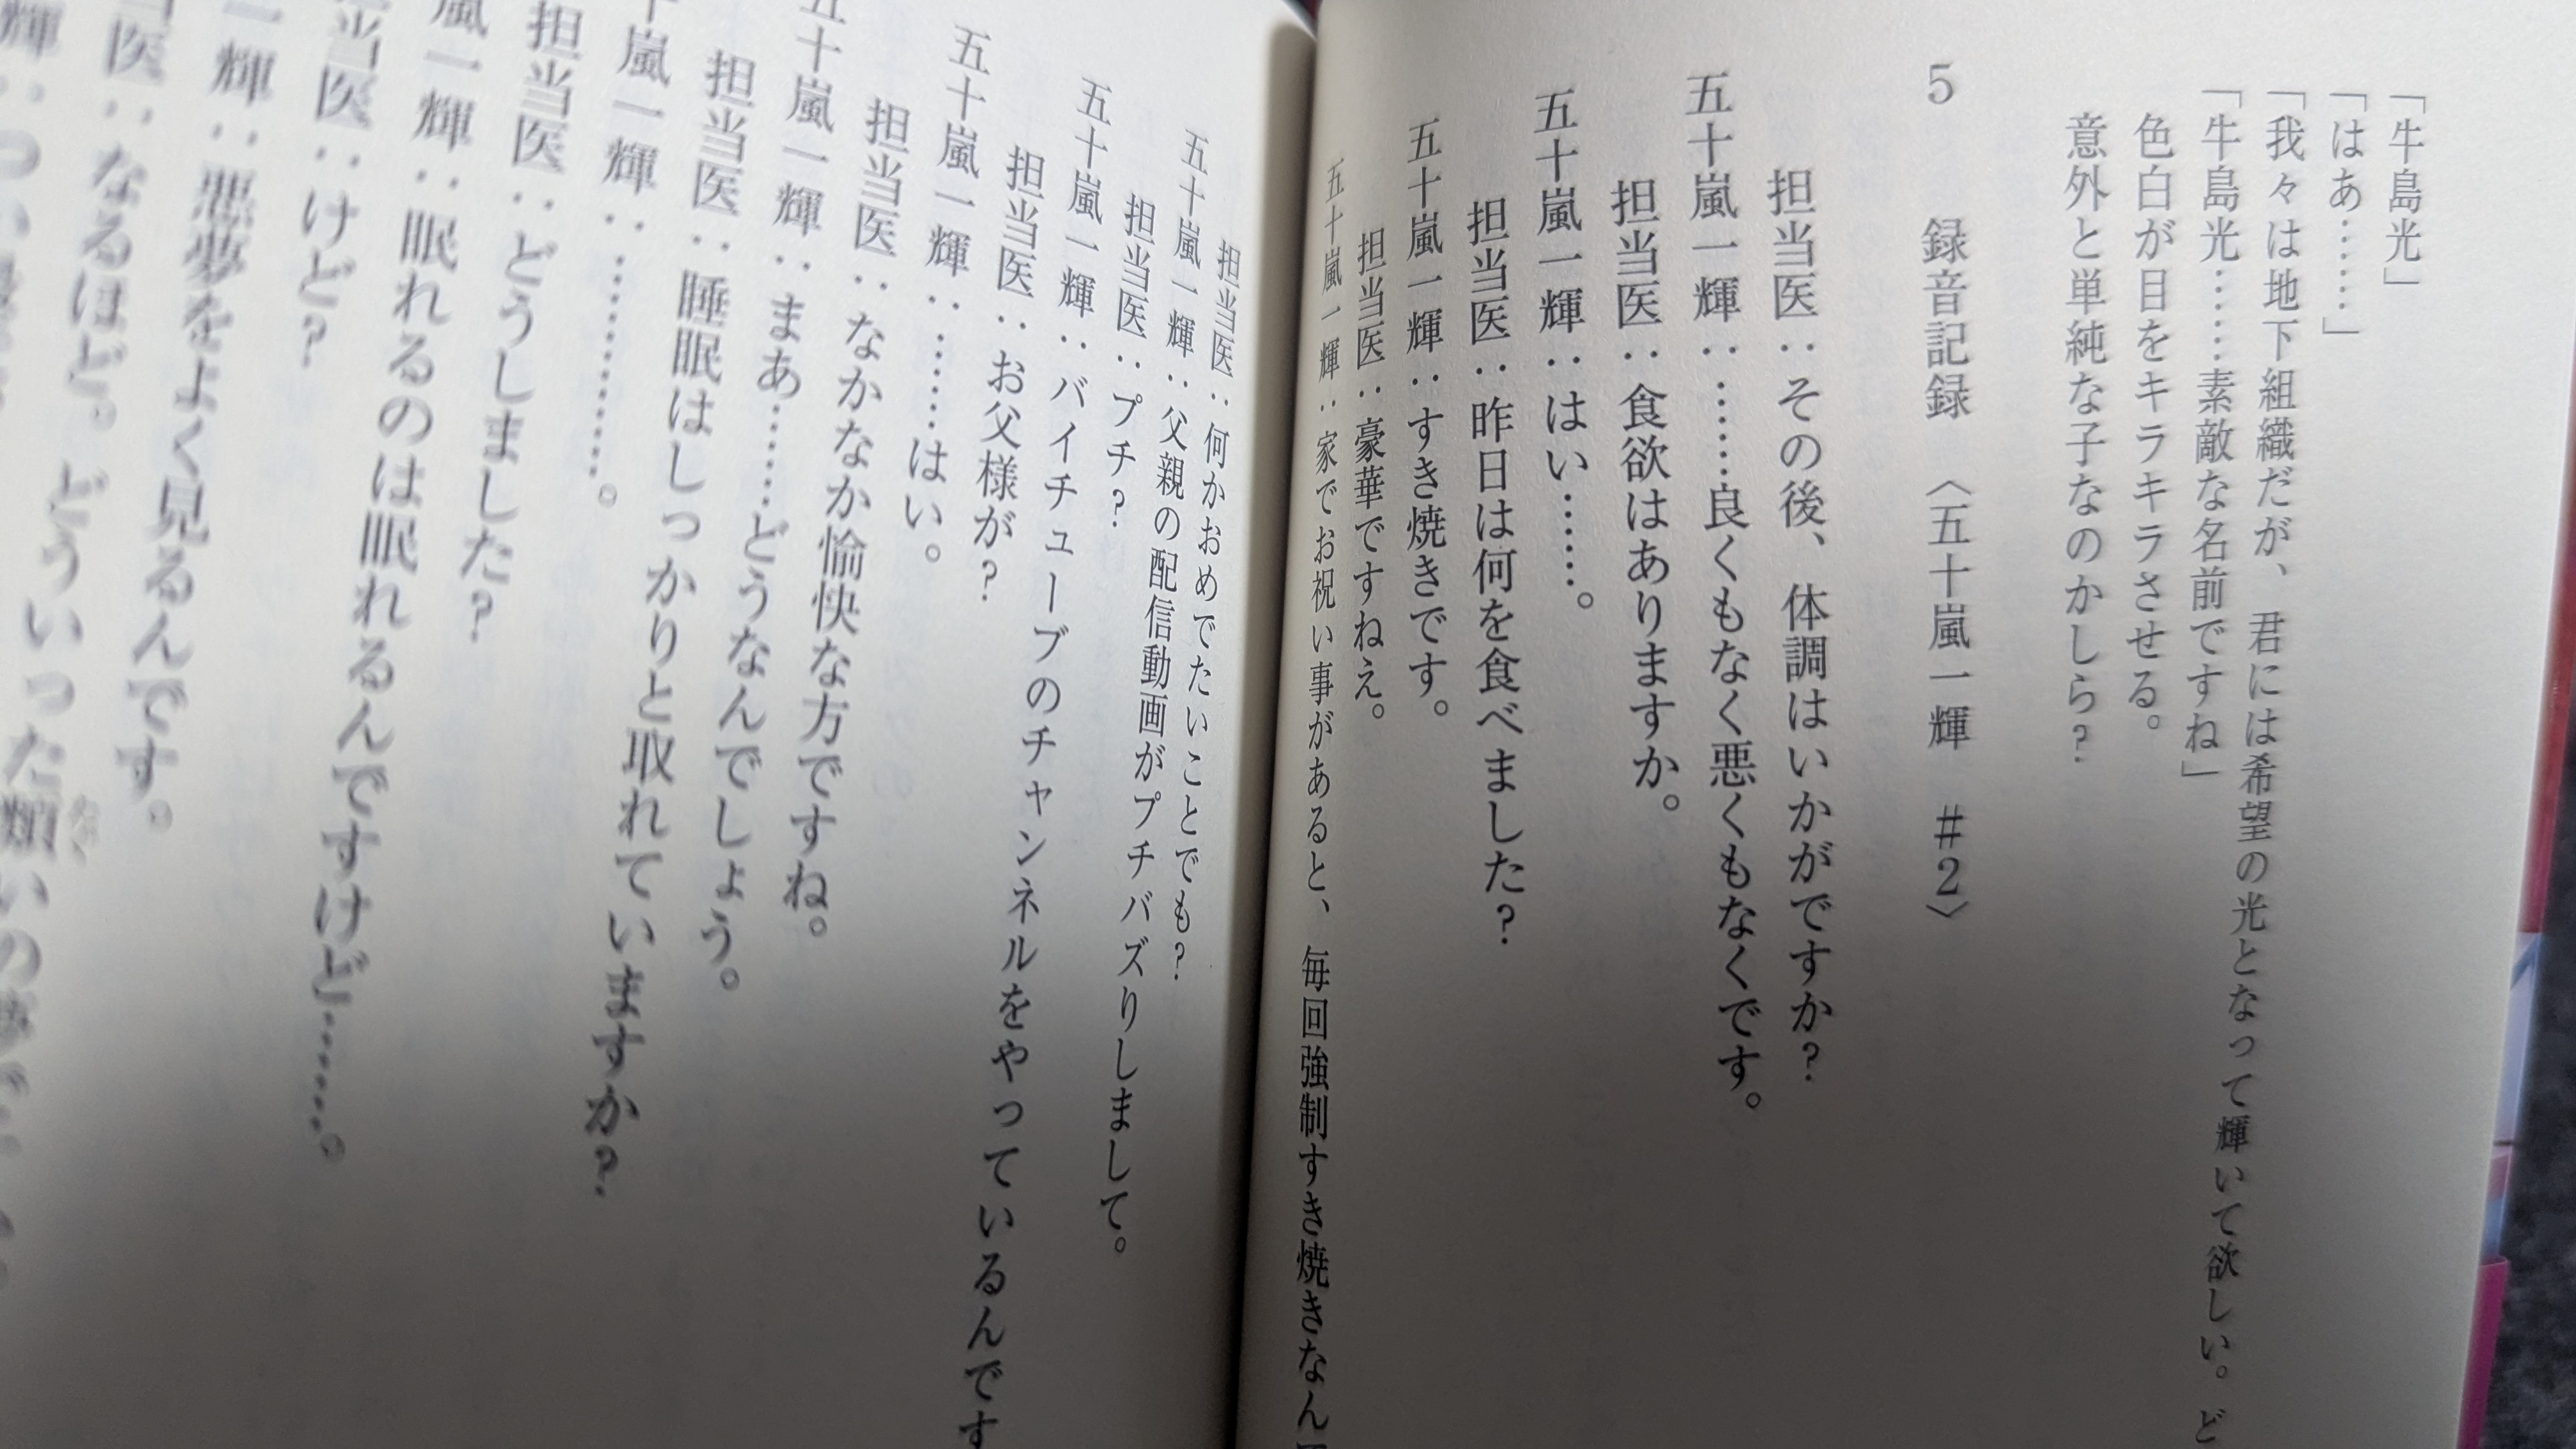 「牛島光」
「はあ……」
「我々は地下組織だが、君には希望の光となって輝いて欲しい。ど
「牛島光……素敵な名前ですね」
色白が目をキラキラさせる。
意外と単純な子なのかしら？
5　録音記録　〈五十嵐一輝　＃2〉
担当医：その後、体調はいかがですか？
五十嵐一輝：……良くもなく悪くもなくです。
担当医：食欲はありますか。
五十嵐一輝：はい……。
担当医：昨日は何を食べました？
五十嵐一輝：すき焼きです。
担当医：豪華ですねえ。
五十嵐一輝：家でお祝い事があると、毎回強制すき焼きなん
担当医：何かおめでたいことでも？
五十嵐一輝：父親の配信動画がプチバズりしまして。
担当医：プチ？
五十嵐一輝：バイチューブのチャンネルをやっているんです
担当医：お父様が？
五十嵐一輝：……はい。
担当医：なかなか愉快な方ですね。
五十嵐一輝：まあ……どうなんでしょう。
担当医：睡眠はしっかりと取れていますか？
十嵐一輝：…………。
担当医：どうしました？
嵐一輝：眠れるのは眠れるんですけど……。
担当医：けど？
一輝：悪夢をよく見るんです。
当医：なるほど。どういった類いの夢で
輝：つい最